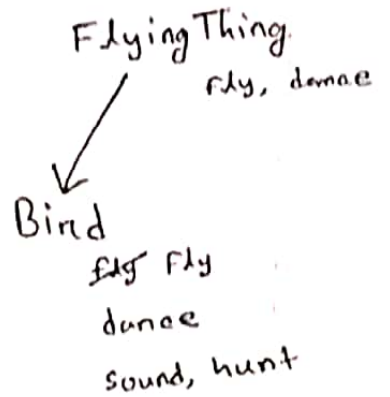 FlyingThing
Fly, dance
Bird
Fly
dance
sound, hunt